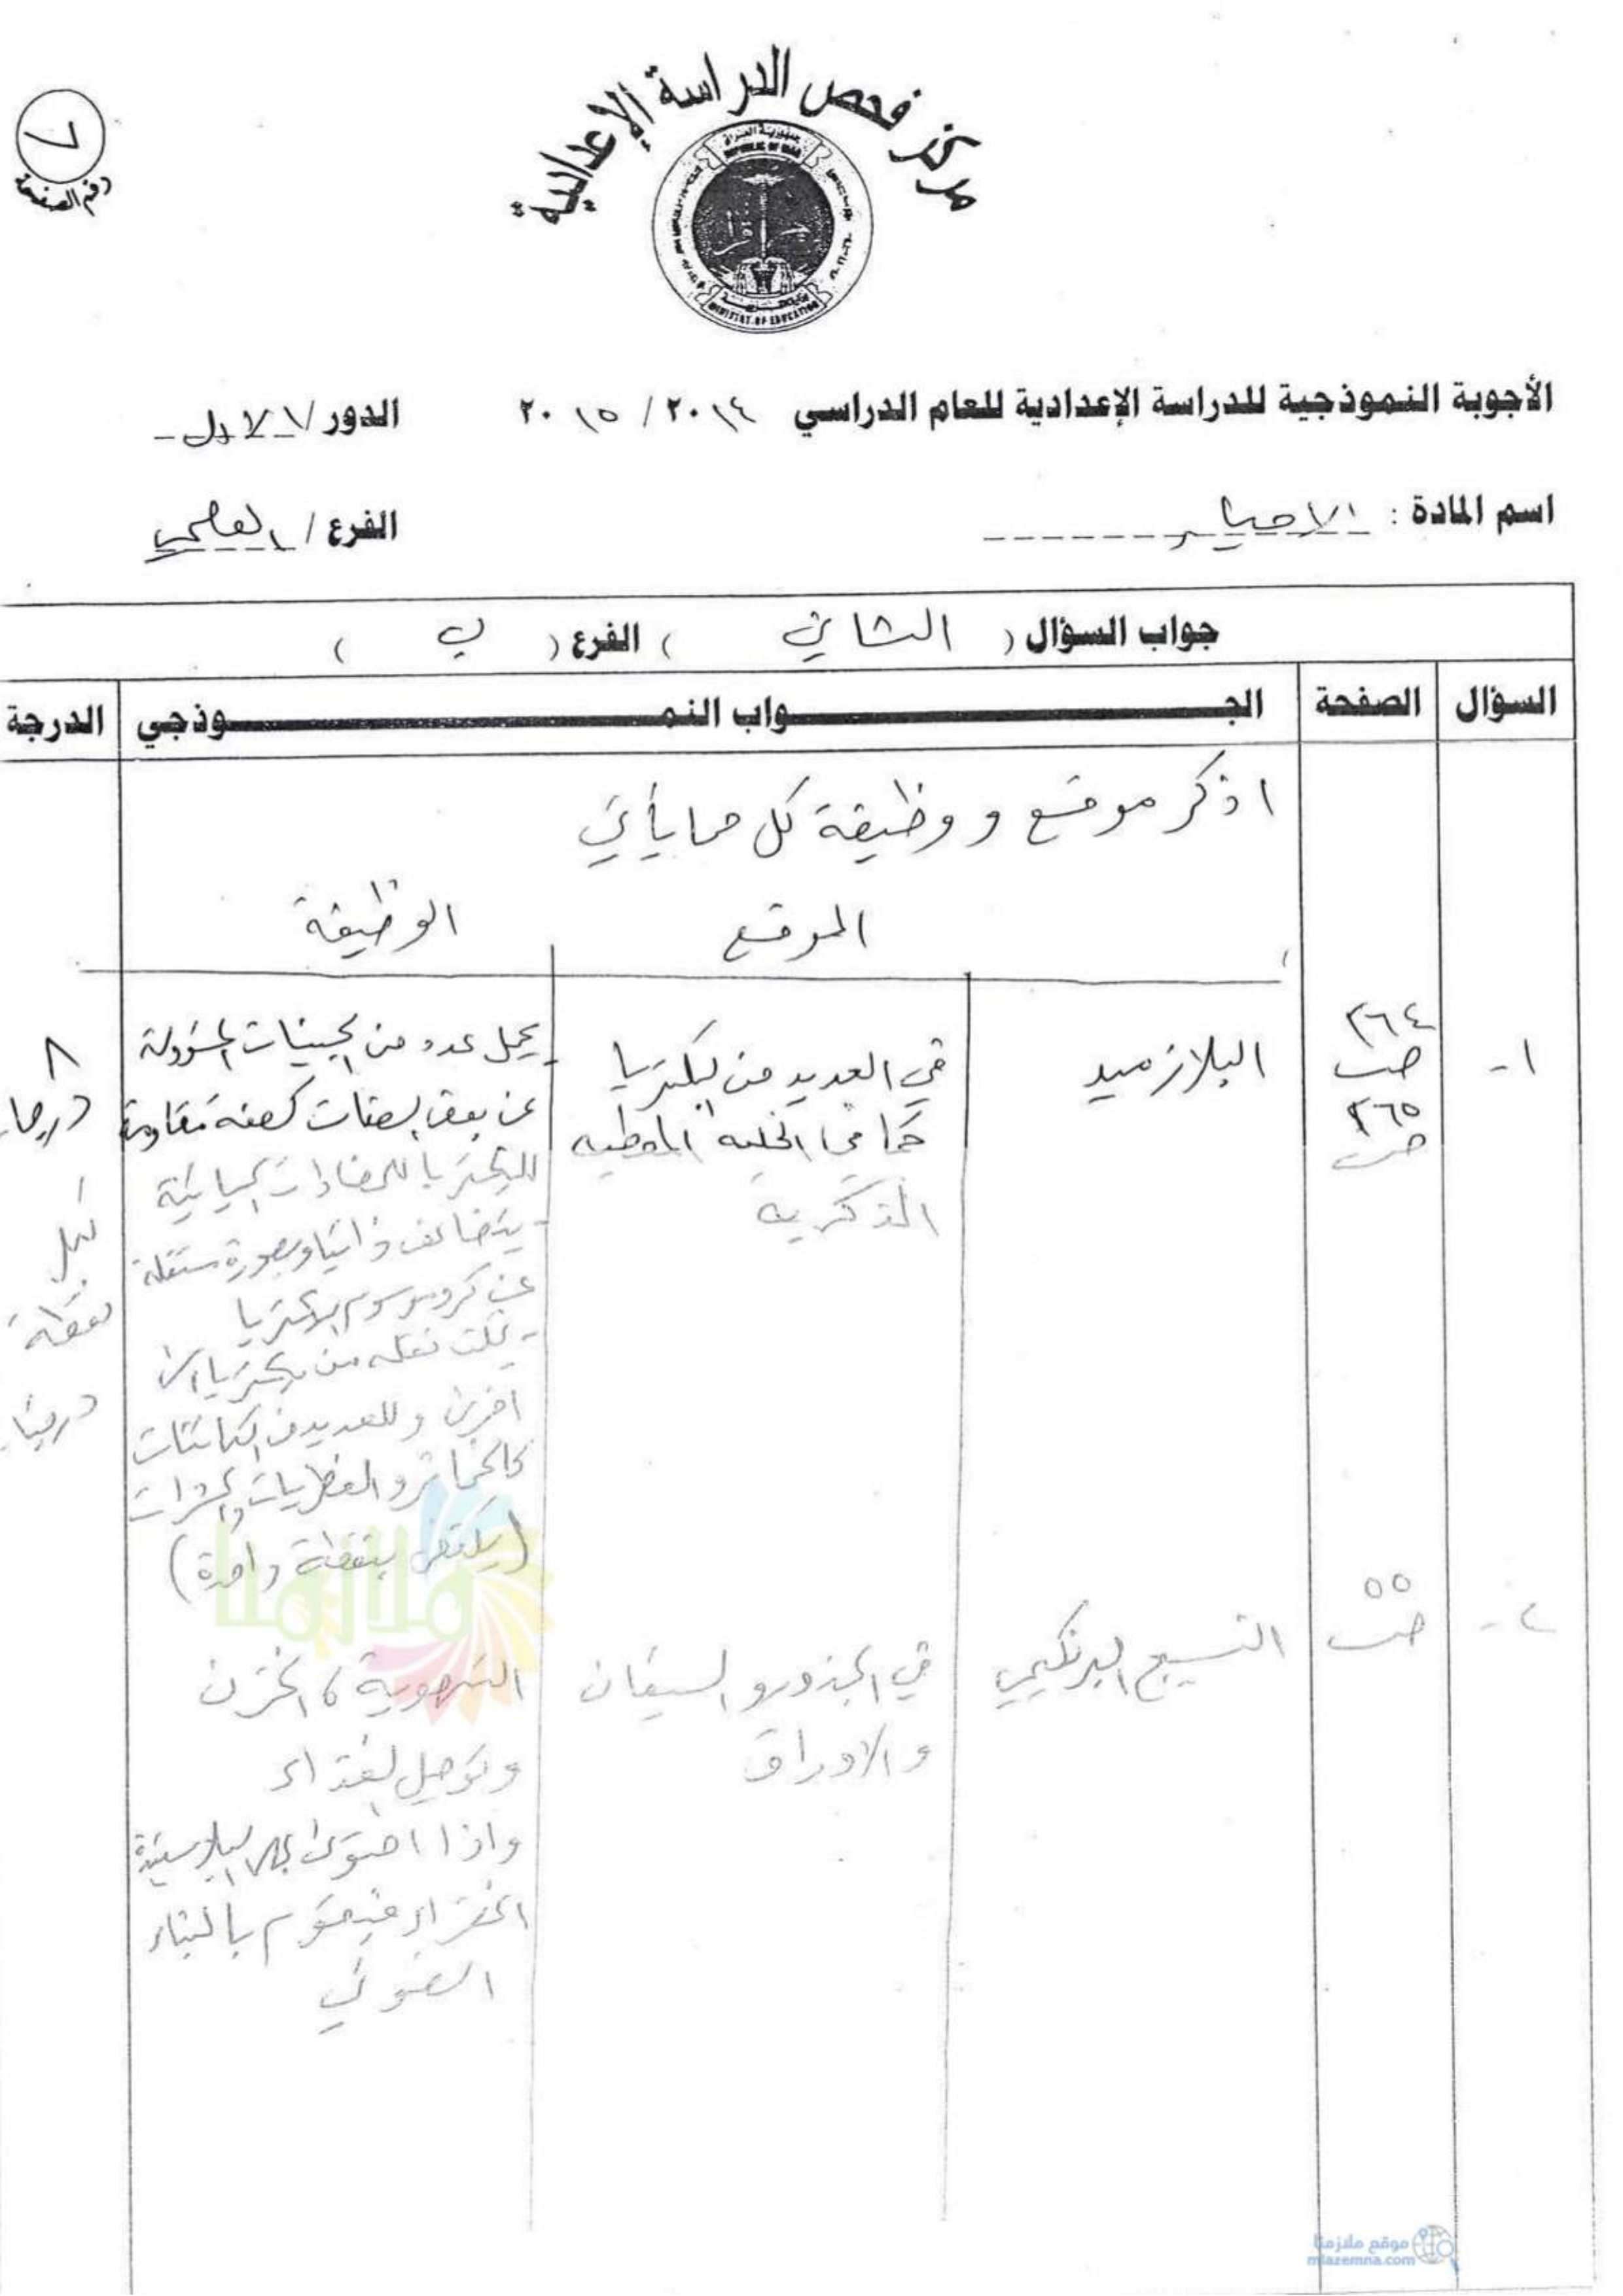 مركز فحص الدراسة الإعدادية
جمهورية العراق
REPUBLIC OF IRAQ
MINISTRY OF EDUCATION
٧
رقم الصفحة
الأجوبة النموذجية للدراسة الإعدادية للعام الدراسي ٢٠١٤ / ٢٠١٥ الدور / الاول
اسم المادة : الاحياء الفرع / العلمي
جواب السؤال ( الثاني ) الفرع ( ب )
السؤال الصفحة الجـواب النمـوذجي الدرجة
اذكر موقع و وظيفة كل مما يأتي
الموقع الوظيفة
١-
٢٦٤
ص
٢٦٥
ص
البلازميد
في العديد من البكتريا
كما في الخلية المعطية
الذكرية
يحمل عدد من الجينات المسؤولة
عن بعض الصفات كصفة مقاومة
البكتريا للمضادات الحياتية
- يتضاعف ذاتيا وبصورة مستقلة
عن كروموسوم البكتريا
- يمكن نقله من بكتريا الى
اخرى وللعديد من الكائنات
كالخمائر والفطريات والحشرات
(يكتفى بنقطة واحدة)
٨
درجا
لكل
نقطة
درجتا
٢-
٥٥
ص
النسيج البرنكيمي
في الجذور والسيقان
والاوراق
التهوية ، الخزن
وتوصيل الغذاء
واذا احتوى على البلاستيدة
الخضراء فيقوم بالبناء
الضوئي
ملازمنا
موقع ملازمنا
mlazemna.com